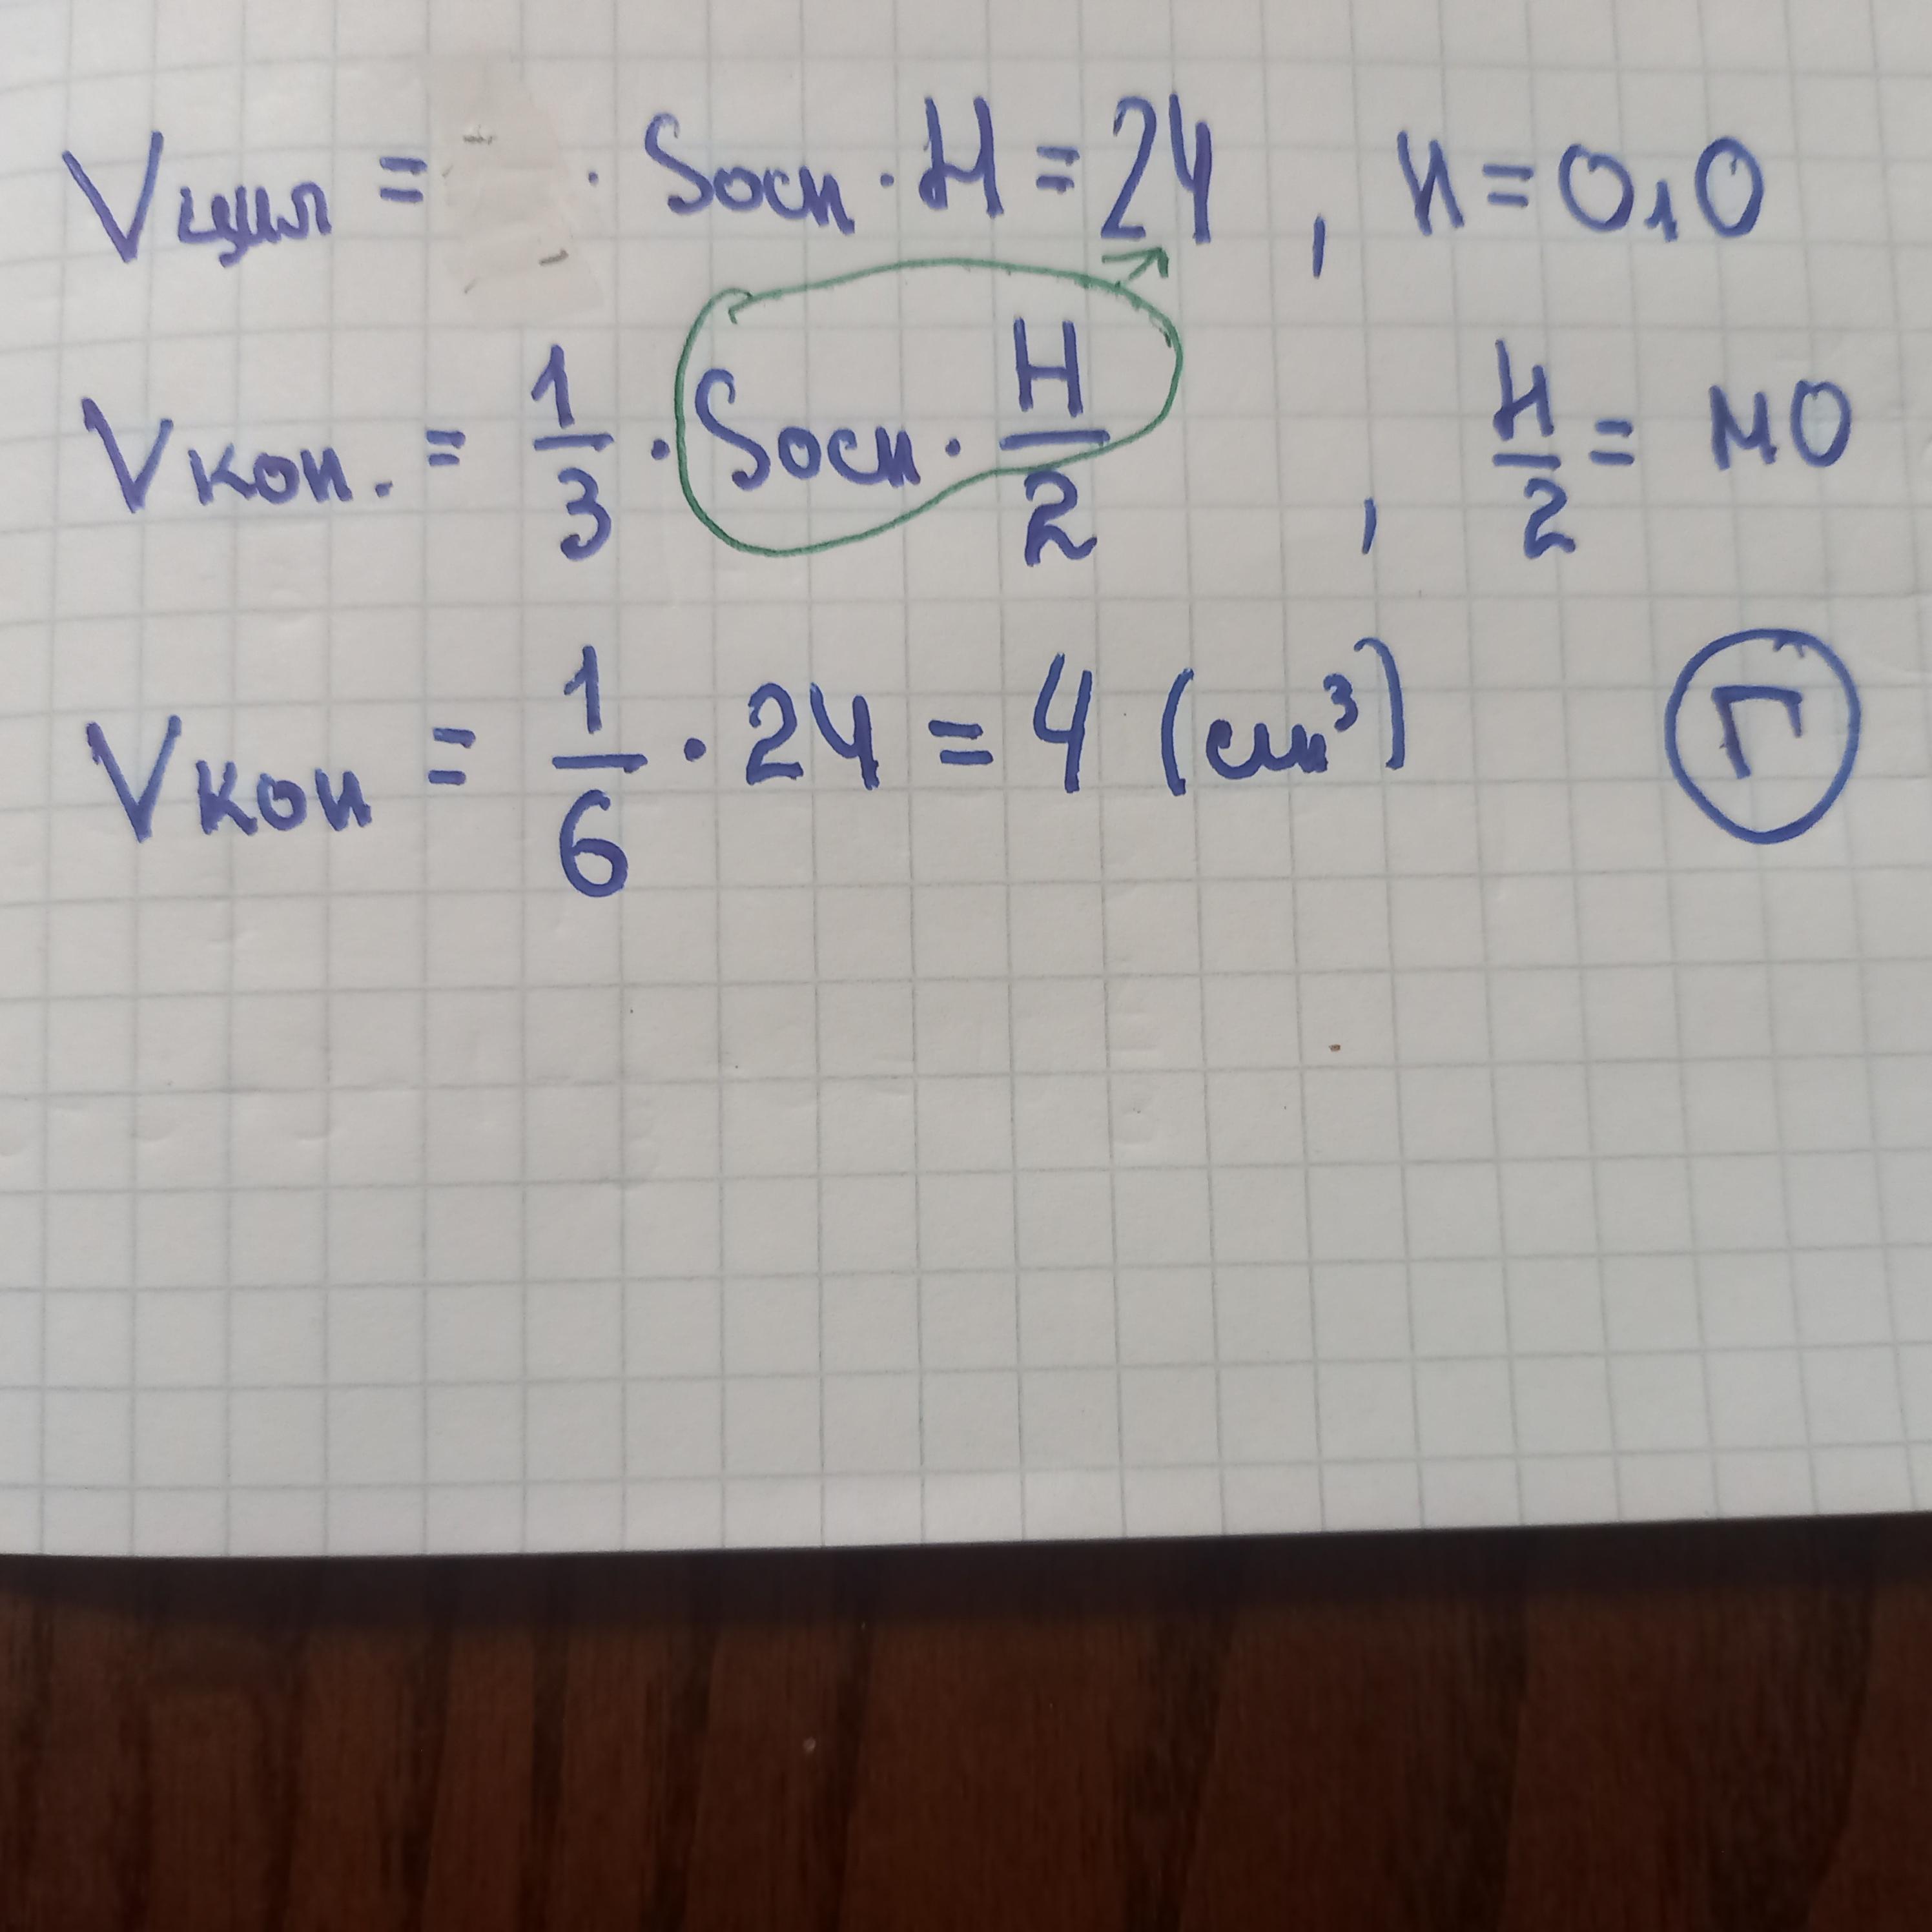 Vцил = · Sосн · H = 24 , H = O₁O
Vкон. = 1/3 · Sосн · H/2 , H/2 = MO
Vкон = 1/6 · 24 = 4 (см³) Г